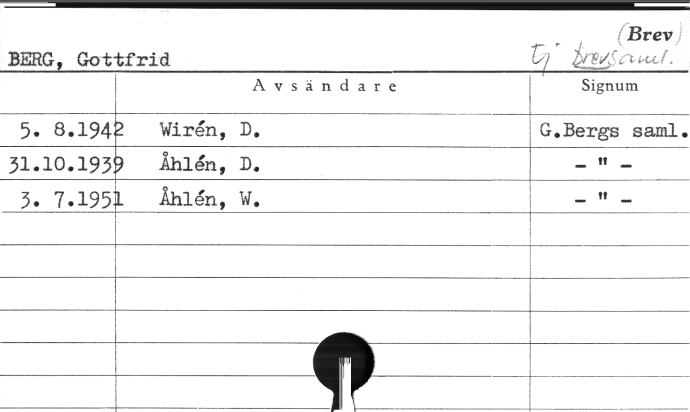 (Brev)
BERG, Gottfrid Ej brevsaml.
Avsändare Signum
5. 8.1942 Wirén, D. G.Bergs saml.
31.10.1939 Åhlén, D. - " -
3. 7.1951 Åhlén, W. - " -